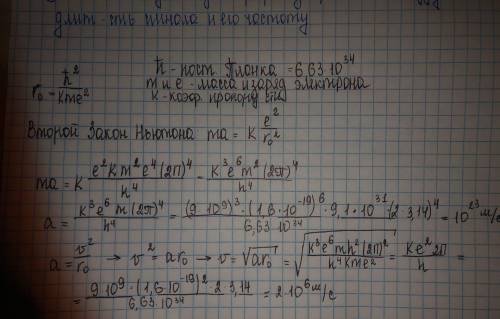 длит-сть импульса и его частоту
ħ - пост. Планка = 6,63·10³⁴
r₀ = ħ²/kme²
m и e - масса и заряд электрона
K - коэф. пропорц-сти
Второй закон Ньютона ma = K e²/r₀²
ma = K e²k²m²e⁴(2π)⁴/h⁴ = k³e⁶m²(2π)⁴/h⁴
a = k³e⁶m(2π)⁴/h⁴ = (9·10⁹)³·(1,6·10⁻¹⁹)⁶·9,1·10³¹(2·3,14)⁴/6,63·10³⁴ = 10²³ м/с
a = v²/r₀ → v² = ar₀ → v = √ar₀ = √k³e⁶mh²(2π)²/h⁴kme² = Ke²2π/h =
= 9·10⁹·(1,6·10⁻¹⁹)²·2·3,14/6,63·10³⁴ = 2·10⁶ м/с